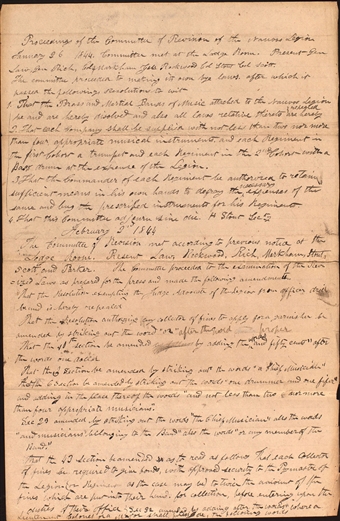 Proceedings of the Committee of Revision of the Nauvoo Legion
January 26 1844. Committee met at the Lodge Room. Present Gen
Law, Gen Rich, Col Markham Col Rockwood Col Stout Col Scott
The committee proceeded to making its own bye laws, after which it
passed the following resolutions to wit
1. That the Brass and Martial Bands of Music attached to the Nauvoo Legion
be and are hereby dissolved and also all laws relative thereto are hereby
repealed
2. That each Company shall be supplied with not less than two nor more
than four appropriate musical instruments and each Regiment in
the first Cohort a trumpet and each Regiment in the 2nd Cohort with a
Bass drum at the expense of the Legion.
3. That the Commander of each Regiment be authorized to retain
sufficient means in his own hands to defray the expenses of the
necessary
same and buy the prescribed instruments for his Regiment
4. That this Committee adjourn sine die H Stout Sec
February 2nd 1844
The Committee of Revision met according to previous notice at the
Lodge Room. Present Law, Rockwood, Rich, Markham, Stout,
Scott and Parker. The Committee proceeded to the examination of the Rev-
ised Laws as prepared for the press and made the following amendments
That the Resolution exempting the Judge Advocate of the Legion from officer drill
armed is hereby repealed
That the Resolution authorizing any collector of fines to apply for a warrant be
amended by striking out the word "or" after the word proper
That the section be amended by adding the words "and fifty cents" after
the words one dollar
That the section be amended by striking out the words "a Chief Musician"
And the 6 section be amended by striking out the words "one drummer and one fifer"
and adding in the place thereof the words "and not less than two or more
than four appropriate musicians.
Sec 29 amended by striking out the words "the Chief Musician" also the words
"and musicians belonging to the Band" also the words "or any member of the
Band."
That the 43 Section be amended so as to read as follows That each Collector
of fines be required to give bonds, with approved security to the Paymaster of
the Legion or Regiment as the case may be to twice the amount of the
fines which are put into their hands for collection, before entering upon the
duties of their office. Sec 32 amended by adding after the words where a